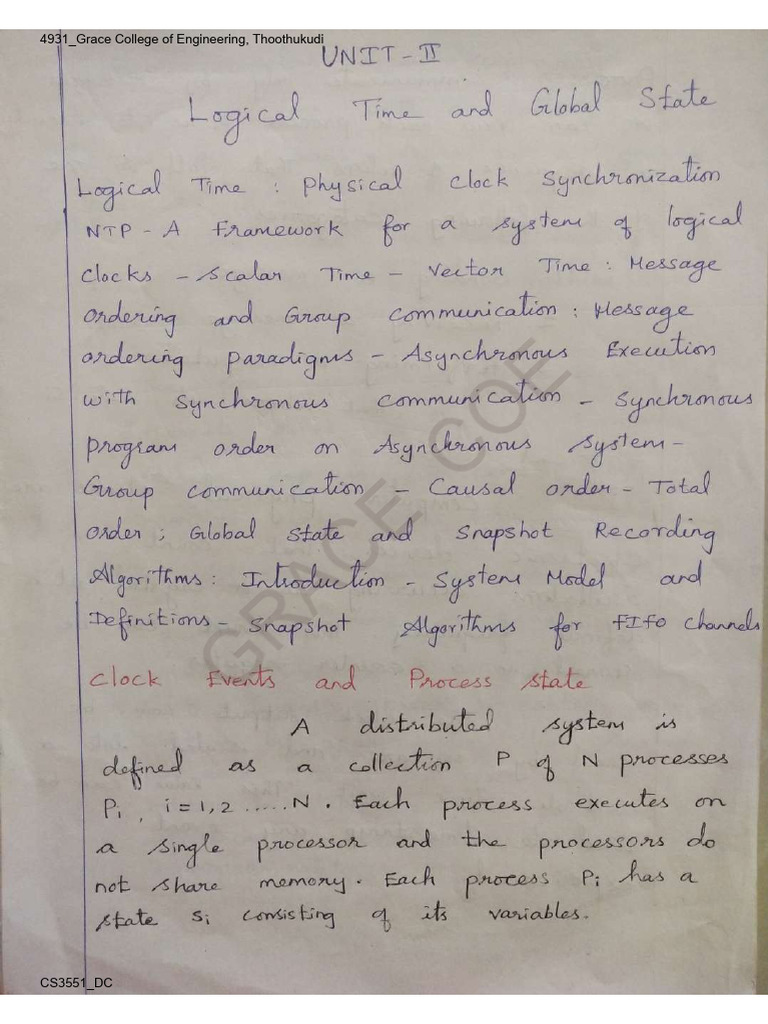 4931_Grace College of Engineering, Thoothukudi
UNIT-II
Logical Time and Global State
Logical Time : Physical Clock Synchronization
NTP - A Framework for a system of logical
clocks - Scalar Time - Vector Time : Message
Ordering and Group Communication : Message
ordering paradigms - Asynchronous Execution
with synchronous communication - Synchronous
program order on Asynchronous system -
Group communication - Causal order - Total
order ; Global State and Snapshot Recording
Algorithms : Introduction - System Model and
Definitions - Snapshot Algorithms for FIFO Channels
GRACE COE
Clock Events and Process state
A distributed system is
defined as a collection P of N processes
Pi, i = 1, 2 ..... N . Each process executes on
a single processor and the processors do
not share memory. Each process Pi has a
state Si consisting of its variables.
CS3551_DC